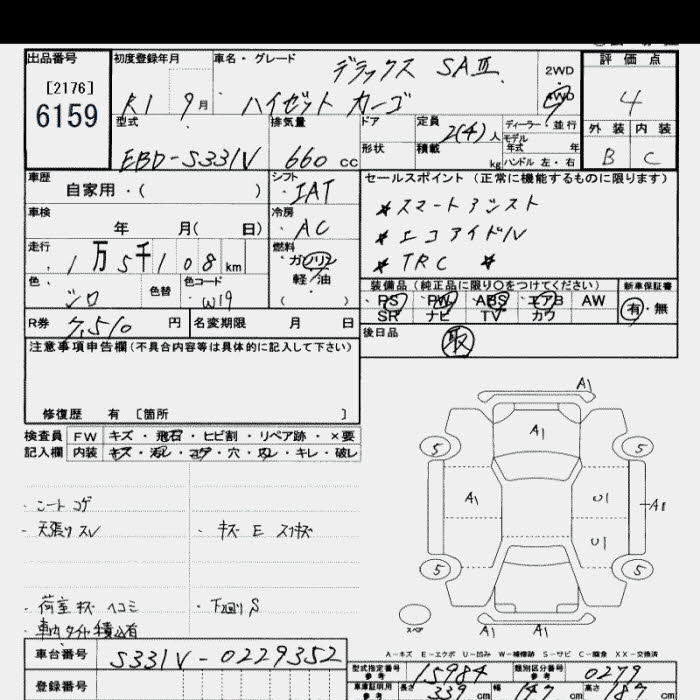 出品番号 初度登録年月 車名・グレード デラックス SAⅢ 2WD 4WD 評価点
[2176]
6159
R1 9月 ハイゼット カーゴ 4
型式 排気量 ドア 定員 2(4)人 ディーラー・並行 外装 内装
EBD-S331V 660cc 形状 積載 kg モデル年式 年 ハンドル 左・右 B C
車歴 シフト セールスポイント(正常に機能するものに限ります)
自家用・( ) IAT ★スマートアシスト
車検 冷房 ★エコアイドル
年 月( 日) AC ★TRC ★
走行 燃料
1万5千108km ガソリン
軽/油
( )
色 色替 色コード 装備品(純正品に限り○をつけてください) 新車保証書
シロ W19 PS PW ABS エアB AW 有・無
SR ナビ TV カワ
R券 7,510円 名変期限 月 日 後日品 取
注意事項申告欄(不具合内容等は具体的に記入して下さい)
修復歴 有 [箇所 ]
検査員 FW キズ・飛石・ヒビ割・リペア跡・×要
記入欄 内装 キズ・汚レ・コゲ・穴・凹レ・キレ・破レ
A1
A1
5 5
・シートコゲ A1 U1 A1
・天張りスレ ・キズ E スリキズ
U1
5 5
・荷室キズ ヘコミ ・下回りS
・車内タイヤ積込有
スペア A1 A1
A-キズ E-エクボ U-凹み W-補修跡 S-サビ C-腐食 XX-交換済
車台番号 S331V-0229352 型式指定番号 参考 15984 類別区分番号 参考 0279
登録番号 車庫証明用 参考 長さ 339cm 幅 147cm 高さ 187cm